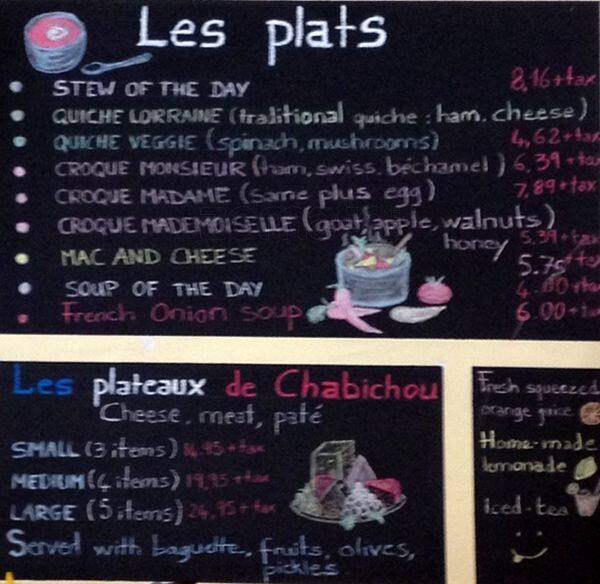 Les plats
STEW OF THE DAY 8,16+tax
QUICHE LORRAINE (traditional quiche: ham, cheese)
QUICHE VEGGIE (spinach, mushrooms) 4,62+tax
CROQUE MONSIEUR (ham, swiss, béchamel) 6,39+tax
CROQUE MADAME (same plus egg) 7,89+tax
CROQUE MADEMOISELLE (goat, apple, walnuts)
honey 5.39+tax
MAC AND CHEESE 5.75+tax
SOUP OF THE DAY 4.00+tax
French Onion soup 6.00+tax
Les plateaux de Chabichou
Cheese, meat, paté
SMALL (3 items) 14.95+tax
MEDIUM (4 items) 19,95+tax
LARGE (5 items) 24,95+tax
Served with baguette, fruits, olives,
pickles
Fresh squeezed
orange juice
Home-made
lemonade
Iced-tea